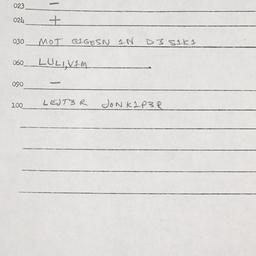 023 —
024 +
030 MOT G1GESN 1N D3 S1K1
060 LULI,V1M
090 —
100 LEJT3R JONK1P3R